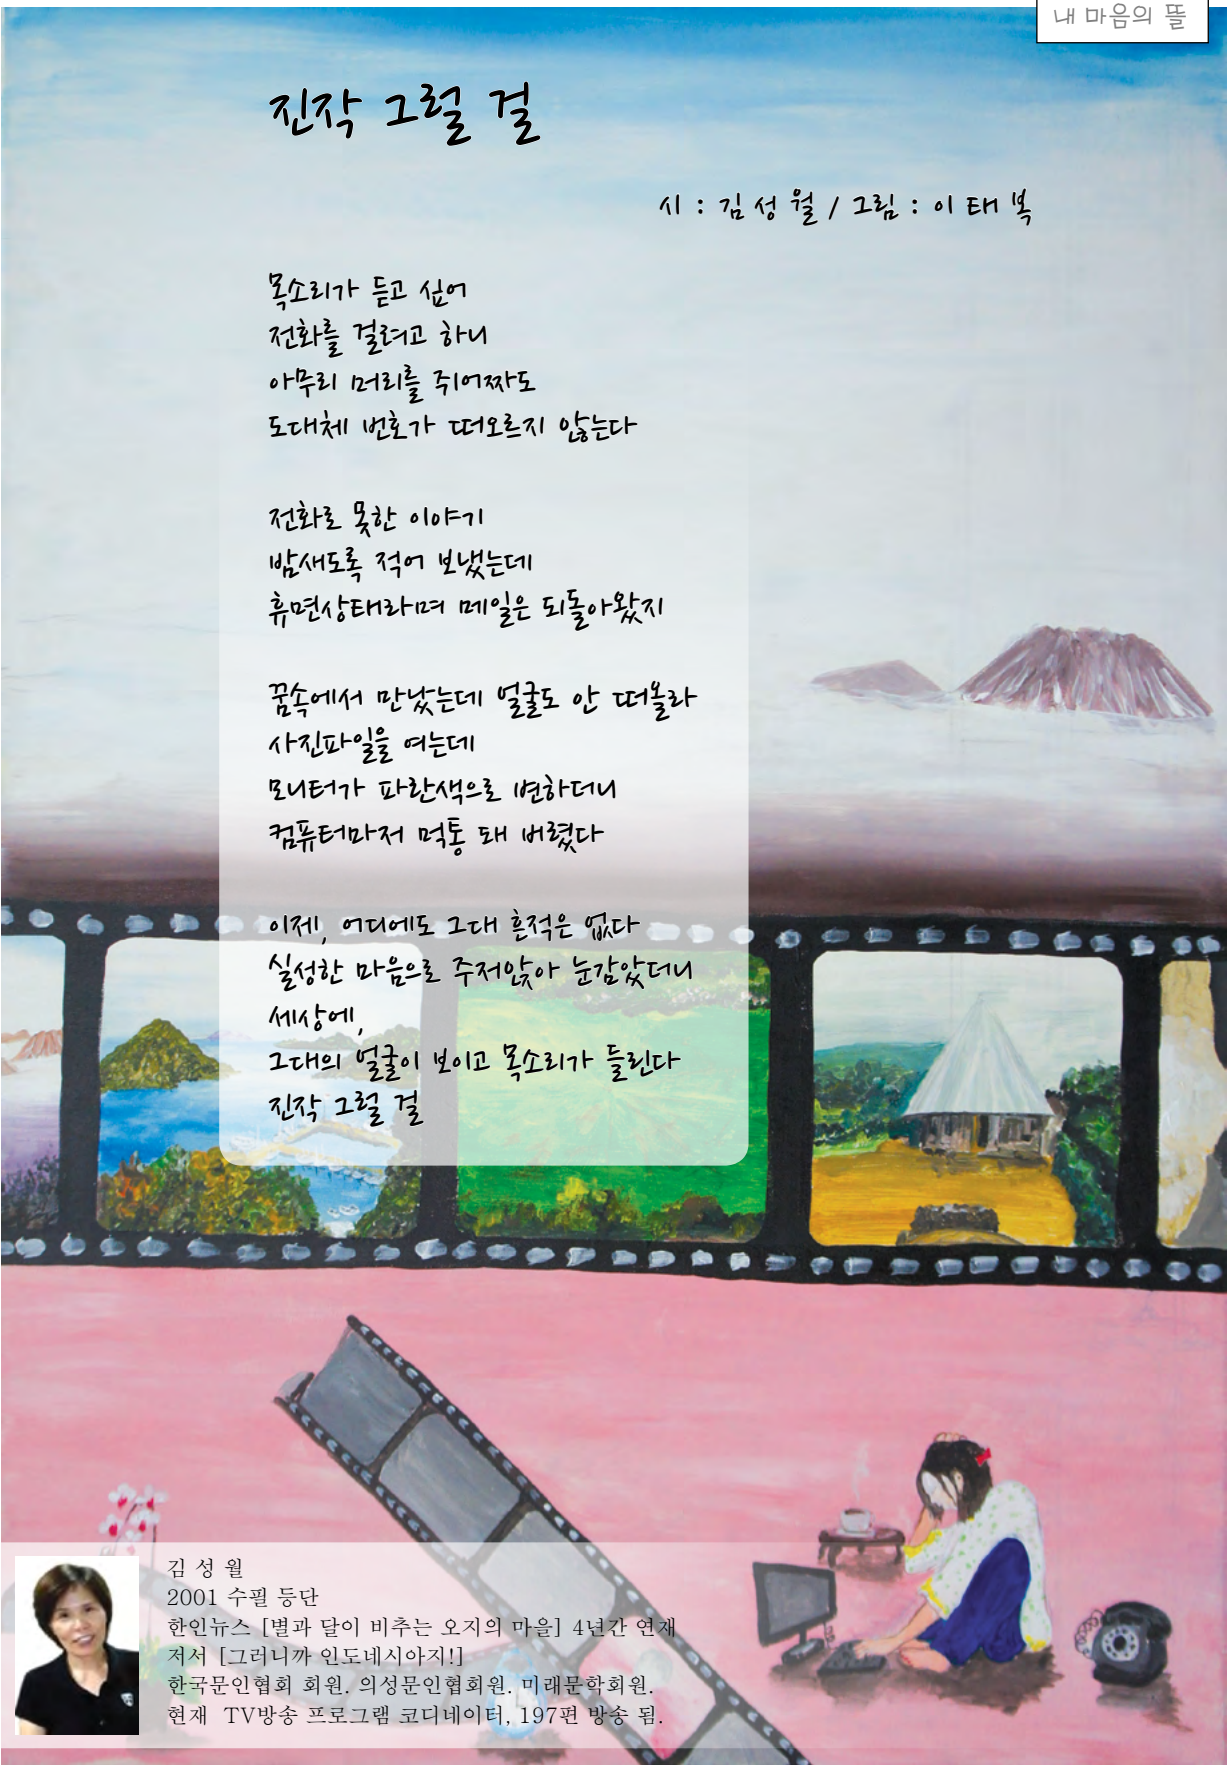 내 마음의 뜰
진작 그럴 걸
시 : 김 성 월 / 그림 : 이 태 복
목소리가 듣고 싶어
전화를 걸려고 하니
아무리 머리를 쥐어짜도
도대체 번호가 떠오르지 않는다
전화로 못한 이야기
밤새도록 적어 보냈는데
휴면상태라며 메일은 되돌아왔지
꿈속에서 만났는데 얼굴도 안 떠올라
사진파일을 여는데
모니터가 파란색으로 변하더니
컴퓨터마저 먹통 돼 버렸다
이제, 어디에도 그대 흔적은 없다
실성한 마음으로 주저앉아 눈감았더니
세상에,
그대의 얼굴이 보이고 목소리가 들린다
진작 그럴 걸
김 성 월
2001 수필 등단
한인뉴스 [별과 달이 비추는 오지의 마을] 4년간 연재
저서 [그러니까 인도네시아지!]
한국문인협회 회원. 의성문인협회원. 미래문학회원.
현재 TV방송 프로그램 코디네이터, 197편 방송 됨.